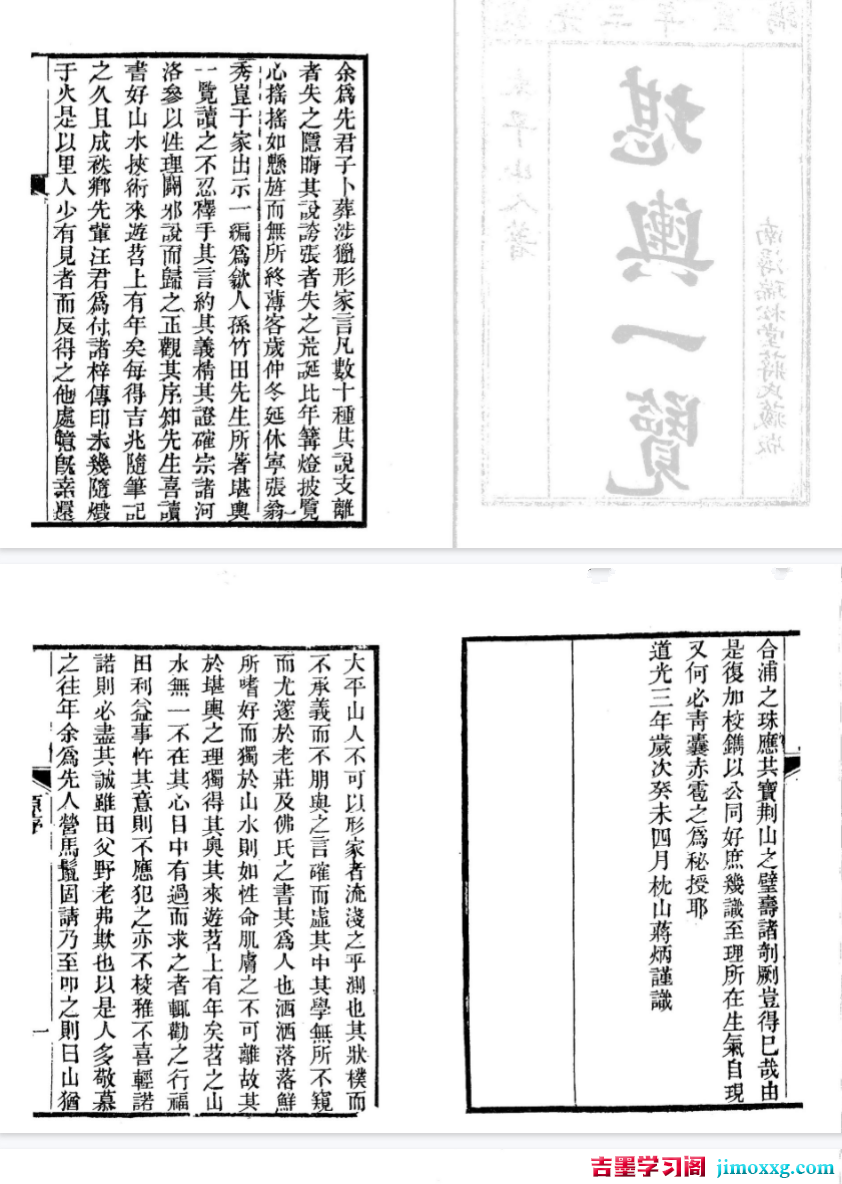 太平山人著
堪輿一覽
南潯瑞松堂蔣氏藏版
余爲先君子卜葬涉獵形家言凡數十種其說支離
者失之隱晦其說誇張者失之荒誕比年篝燈披覽
心搖搖如懸旌而無所終薄客歲仲冬延休寧張翁
秀崑于家出示一編爲歙人孫竹田先生所著堪輿
一覽讀之不忍釋手其言約其義精其證確宗諸河
洛參以性理闢邪說而歸之正觀其序知先生喜讀
書好山水挾術來遊苕上有年矣每得吉兆隨筆記
之久且成袟鄉先輩汪君爲付諸梓傳印未幾隨燬
于火是以里人少有見者而反得之他處噫既幸還
合浦之珠應共寶荆山之璧壽諸剞劂豈得已哉由
是復加校鐫以公同好庶幾識至理所在生氣自現
又何必靑囊赤雹之爲秘授耶
道光三年歲次癸未四月枕山蔣炳謹識
太平山人不可以形家者流淺之乎測也其狀樸而
不承義而不朋與之言確而虛其中其學無所不窺
而尤邃於老莊及佛氏之書其爲人也洒洒落落鮮
所嗜好而獨於山水則如性命肌膚之不可離故其
於堪輿之理獨得其奧其來遊苕上有年矣苕之山
水無一不在其心目中有過而求之者輒勸之行福
田利益事忤其意則不應犯之亦不校雅不喜輕諾
諾則必盡其誠雖田父野老弗欺也以是人多敬慕
之往年余爲先人營馬鬛固請乃至叩之則曰山猶
原序
一
吉墨学习阁 jimoxxg.com